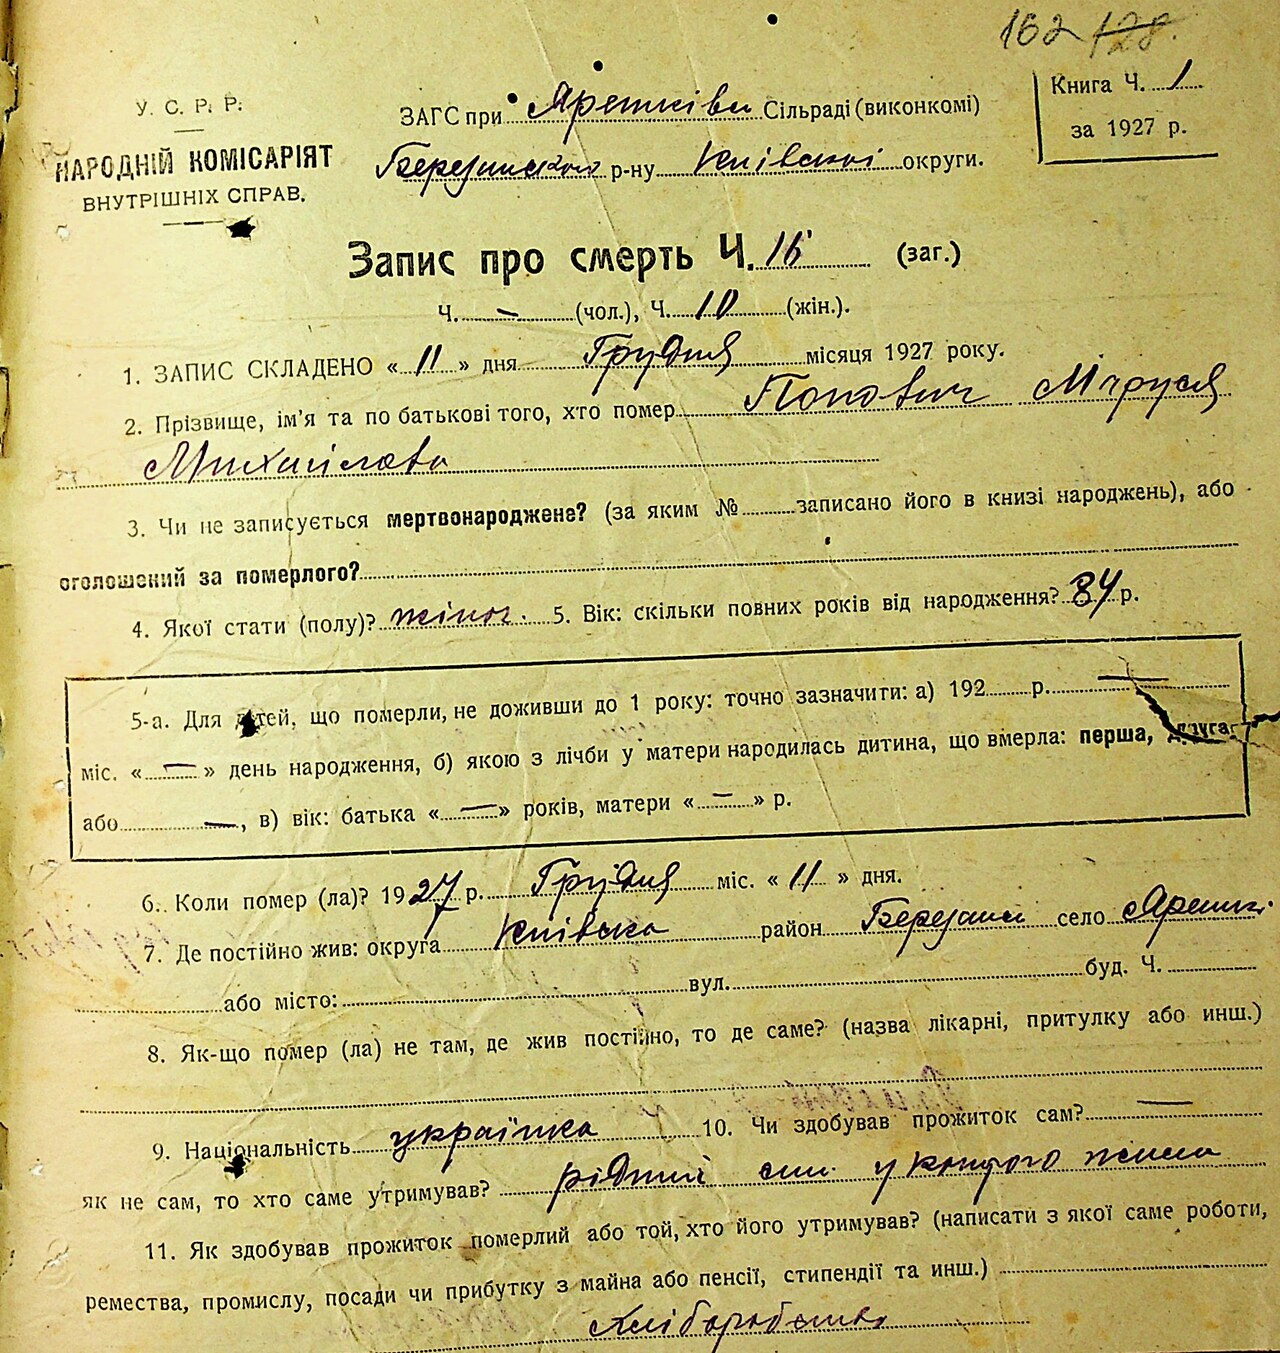 162 128.
У. С. Р. Р.
НАРОДНІЙ КОМІСАРІЯТ
ВНУТРІШНІХ СПРАВ.
ЗАГС при Ярешківськ Сільраді (виконкомі)
Березанського р-ну Київської округи.
Книга Ч. 1
за 1927 р.
Запис про смерть Ч. 15 (заг.)
Ч. — (чол.), Ч. 10 (жін.).
1. ЗАПИС СКЛАДЕНО « 11 » дня Грудня місяця 1927 року.
2. Прізвище, ім'я та по батькові того, хто помер Попович Маруся
Михайлова
3. Чи не записується мертвонароджене? (за яким № записано його в книзі народжень), або
оголошений за померлого?
4. Якої стати (полу)? жіноч. 5. Вік: скільки повних років від народження? 84 р.
5-а. Для дітей, що померли, не доживши до 1 року: точно зазначити: а) 192 р. —
міс. « — » день народження, б) якою з лічби у матери народилась дитина, що вмерла: перша, друга
або —, в) вік: батька « — » років, матери « — » р.
6. Коли помер (ла)? 1927 р. Грудня міс. « 11 » дня.
7. Де постійно жив: округа Київська район Березань село Ярешкі
або місто: вул. буд. Ч.
8. Як-що помер (ла) не там, де жив постійно, то де саме? (назва лікарні, притулку або инш.)
9. Національність українка 10. Чи здобував прожиток сам? —
як не сам, то хто саме утримував? рідний син у которого жила
11. Як здобував прожиток померлий або той, хто його утримував? (написати з якої саме роботи,
ремества, промислу, посади чи прибутку з майна або пенсії, стипендії та инш.)
Хліборобство